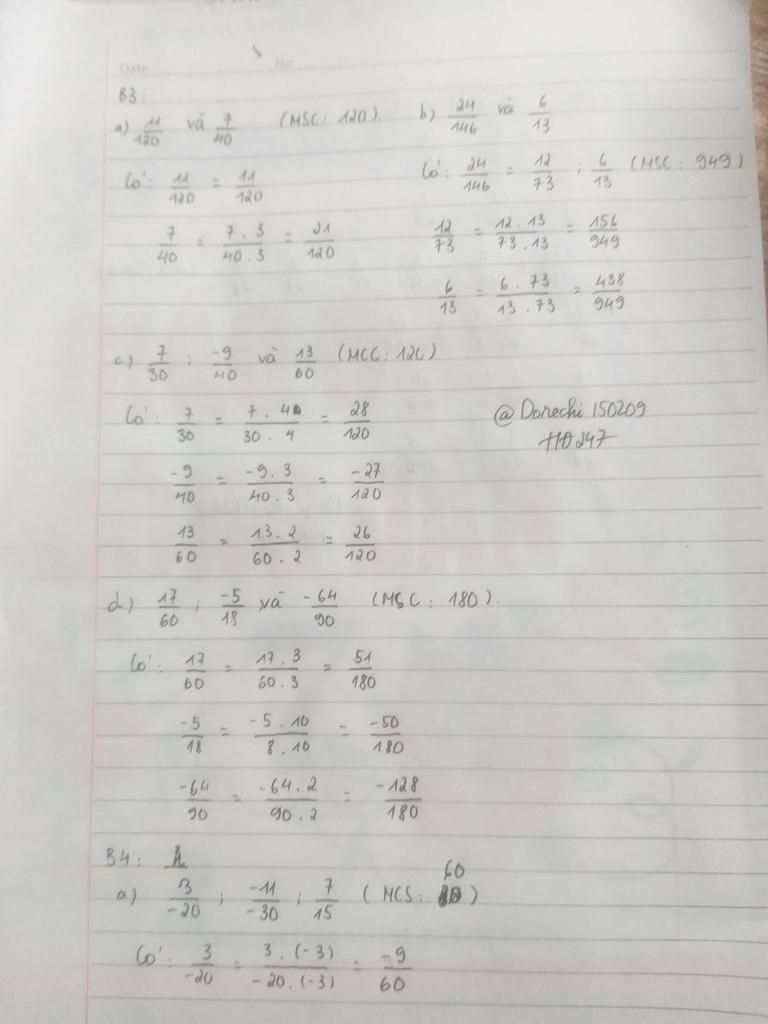 Date No
B3:
a) 11/120 và 7/40 (MSC: 120). b) 24/146 và 6/13
Có: 11/120 = 11/120 Có: 24/146 = 12/73 ; 6/13 (MSC: 949)
7/40 = 7.3/40.3 = 21/120 12/73 = 12.13/73.13 = 156/949
6/13 = 6.73/13.73 = 438/949
c) 7/30 ; -9/40 và 13/60 (MCC: 120)
Có: 7/30 = 7.4/30.4 = 28/120 @Dorechi 150209
-9/40 = -9.3/40.3 = -27/120 HD247
13/60 = 13.2/60.2 = 26/120
d) 17/60 ; -5/18 và -64/90 (MSC: 180).
Có: 17/60 = 17.3/60.3 = 51/180
-5/18 = -5.10/8.10 = -50/180
-64/90 = -64.2/90.2 = -128/180
B4:
a) 3/-20 ; -11/-30 ; 7/15 (MCS: 60)
Có: 3/-20 = 3.(-3)/-20.(-3) = -9/60